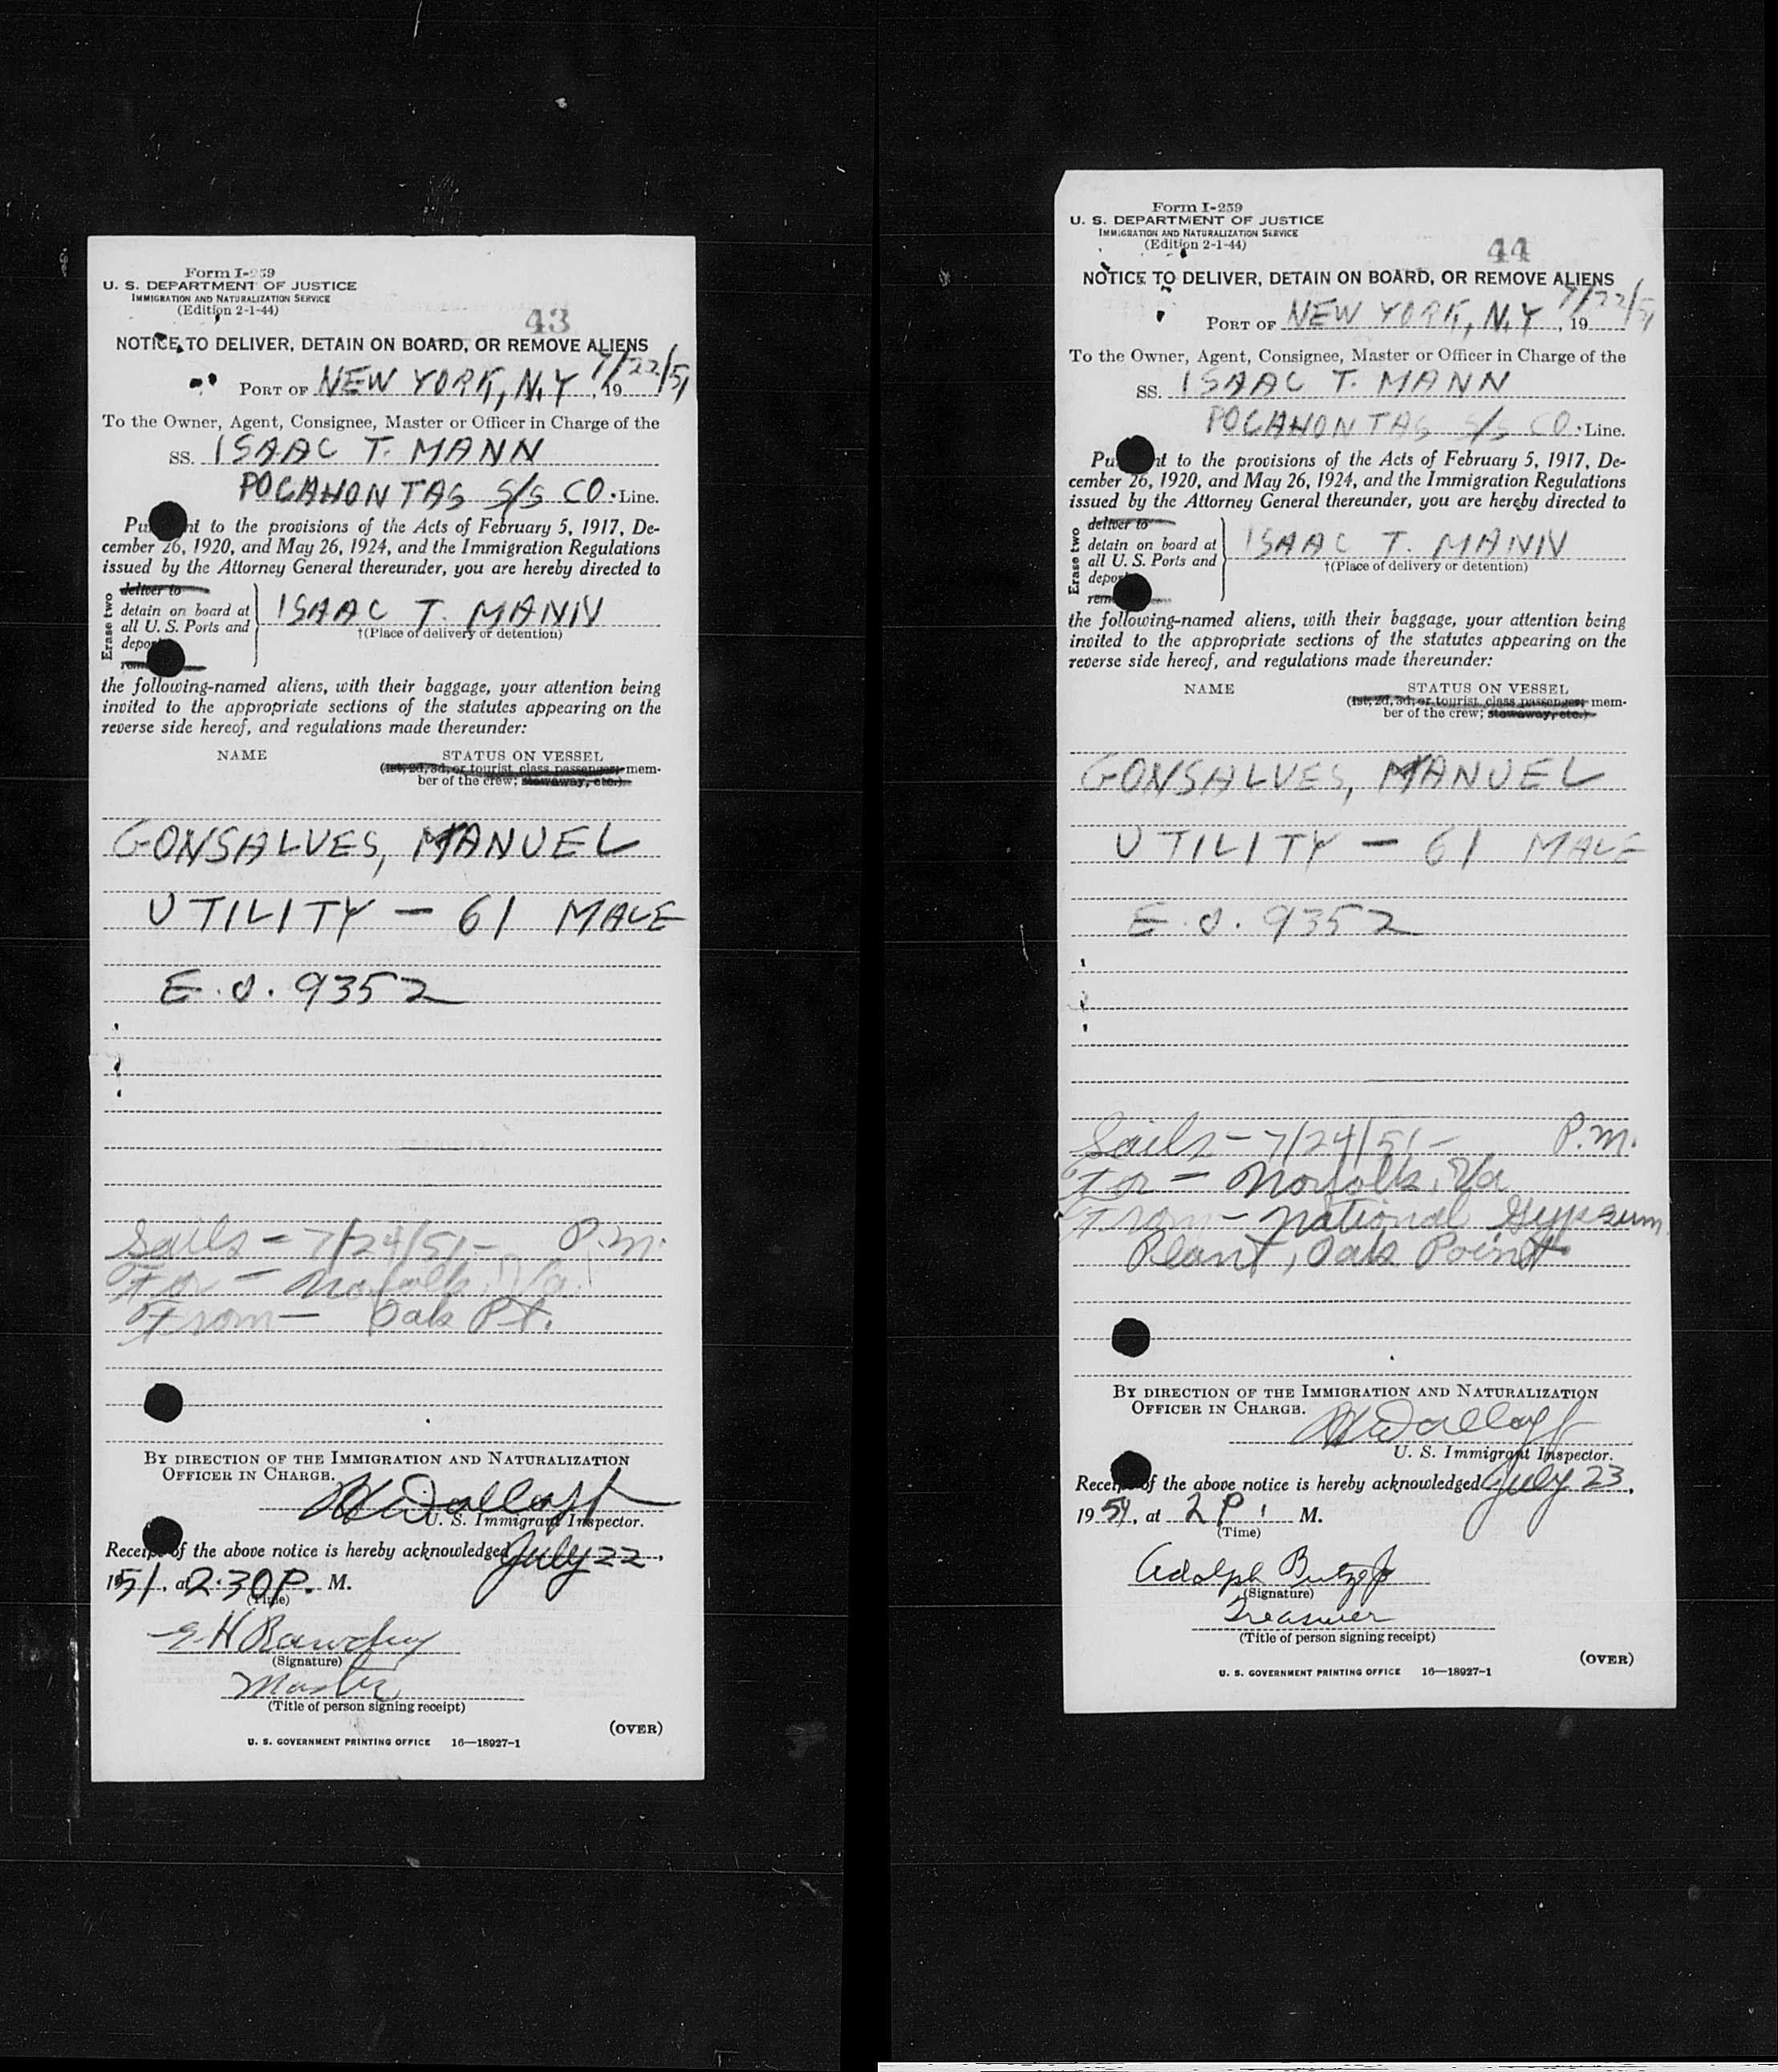 Form I-259
U. S. DEPARTMENT OF JUSTICE
IMMIGRATION AND NATURALIZATION SERVICE
(Edition 2-1-44)
43
NOTICE TO DELIVER, DETAIN ON BOARD, OR REMOVE ALIENS
PORT OF NEW YORK, N.Y, 19 7/22/51
To the Owner, Agent, Consignee, Master or Officer in Charge of the
SS. ISAAC T. MANN
POCAHONTAS S/S CO. Line.
Pu nt to the provisions of the Acts of February 5, 1917, De-
cember 26, 1920, and May 26, 1924, and the Immigration Regulations
issued by the Attorney General thereunder, you are hereby directed to
Erase two
deliver to
detain on board at
all U. S. Ports and
depor
rem
ISAAC T. MANN
†(Place of delivery or detention)
the following-named aliens, with their baggage, your attention being
invited to the appropriate sections of the statutes appearing on the
reverse side hereof, and regulations made thereunder:
NAME STATUS ON VESSEL
(1st, 2d, 3d, or tourist class passenger; mem-
ber of the crew; stowaway, etc.)
GONSALVES, MANUEL
UTILITY — 61 MALE
E.O. 9352
Sails - 7/24/51 - P.M.
For - Norfolk, Va.
From - Oak Pt.
BY DIRECTION OF THE IMMIGRATION AND NATURALIZATION
OFFICER IN CHARGE.
U. S. Immigrant Inspector.
Receipt of the above notice is hereby acknowledged July 22,
1951, at 2:30 P. M.
(Time)
E H
(Signature)
Master
(Title of person signing receipt)
(OVER)
U. S. GOVERNMENT PRINTING OFFICE 16—18927-1
Form I-259
U. S. DEPARTMENT OF JUSTICE
IMMIGRATION AND NATURALIZATION SERVICE
(Edition 2-1-44)
44
NOTICE TO DELIVER, DETAIN ON BOARD, OR REMOVE ALIENS
PORT OF NEW YORK, N.Y, 19 7/22/51
To the Owner, Agent, Consignee, Master or Officer in Charge of the
SS. ISAAC T. MANN
POCAHONTAS S/S CO. Line.
Pu nt to the provisions of the Acts of February 5, 1917, De-
cember 26, 1920, and May 26, 1924, and the Immigration Regulations
issued by the Attorney General thereunder, you are hereby directed to
Erase two
deliver to
detain on board at
all U. S. Ports and
depor
rem
ISAAC T. MANN
†(Place of delivery or detention)
the following-named aliens, with their baggage, your attention being
invited to the appropriate sections of the statutes appearing on the
reverse side hereof, and regulations made thereunder:
NAME STATUS ON VESSEL
(1st, 2d, 3d, or tourist class passenger; mem-
ber of the crew; stowaway, etc.)
GONSALVES, MANUEL
UTILITY — 61 MALE
E.O. 9352
Sails - 7/24/51 - P.M.
For - Norfolk, Va
From - National Gypsum
Plant, Oak Point
BY DIRECTION OF THE IMMIGRATION AND NATURALIZATION
OFFICER IN CHARGE.
U. S. Immigrant Inspector.
Receipt of the above notice is hereby acknowledged July 23,
1951, at 2 P. M.
(Time)
Adolph
(Signature)
Treasurer
(Title of person signing receipt)
(OVER)
U. S. GOVERNMENT PRINTING OFFICE 16—18927-1